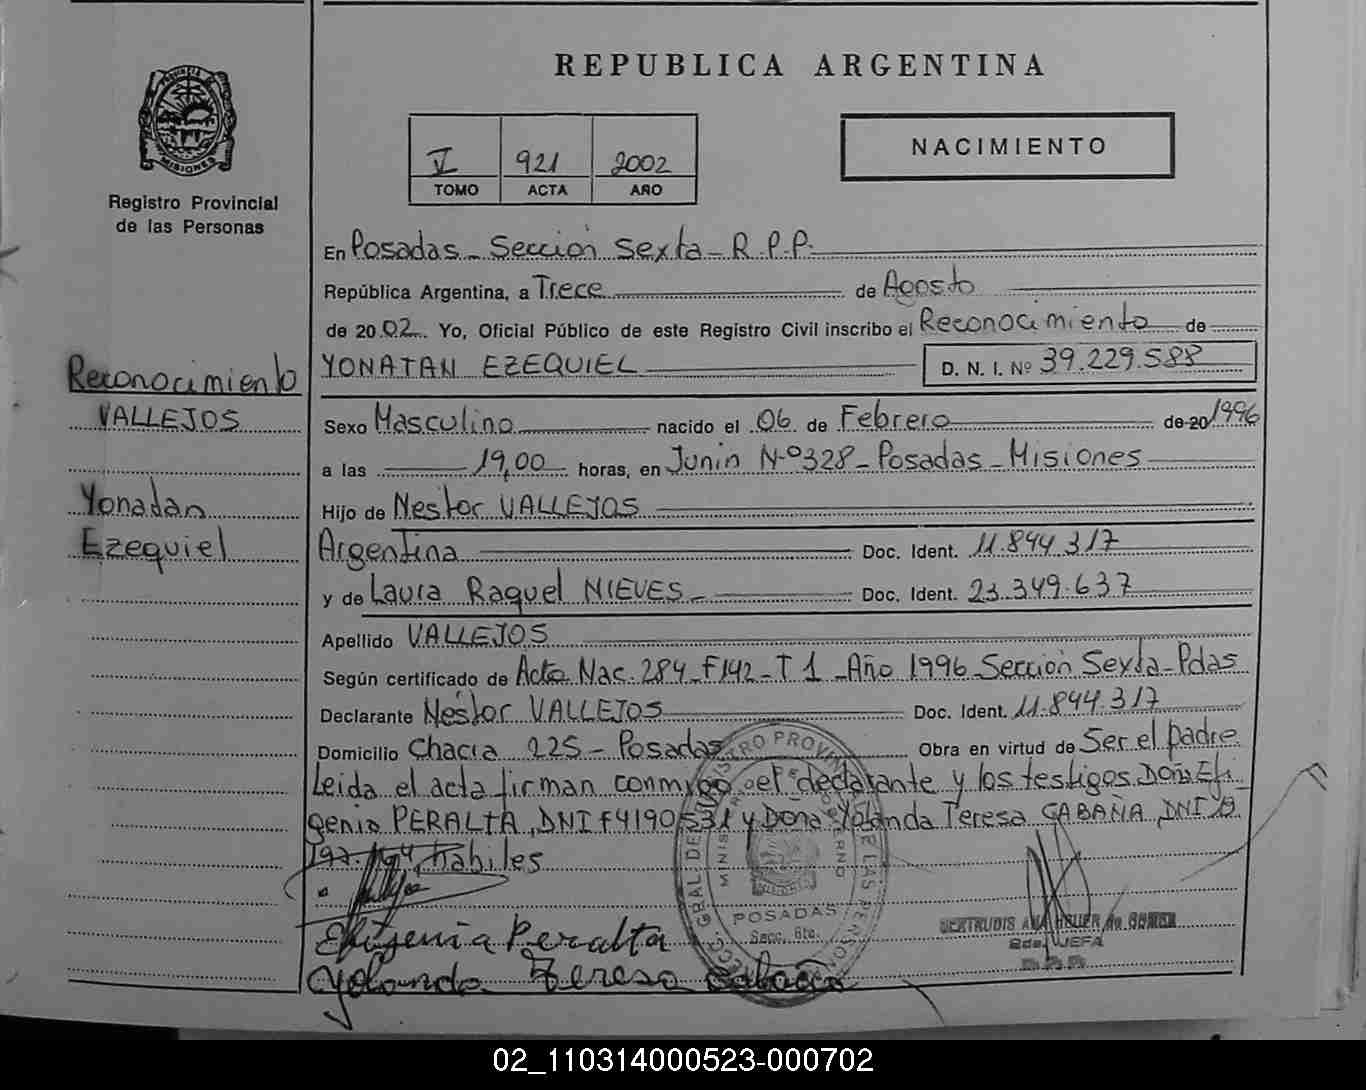 REPUBLICA ARGENTINA
PROVINCIA
MISIONES
Registro Provincial
de las Personas
V 921 2002
TOMO ACTA AÑO
NACIMIENTO
En Posadas - Sección Sexta - R.P.P.
República Argentina, a Trece de Agosto
de 2002. Yo, Oficial Público de este Registro Civil inscribo el Reconocimiento de
YONATAN EZEQUIEL D. N. I. Nº 39.229.588
Reconocimiento
VALLEJOS
Yonadan
Ezequiel
Sexo Masculino nacido el 06 de Febrero de 20 1996
a las 19,00 horas, en Junin Nº 328 - Posadas - Misiones
Hijo de Nestor VALLEJOS
Argentina Doc. Ident. 11.844.317
y de Laura Raquel NIEVES - Doc. Ident. 23.349.637
Apellido VALLEJOS
Según certificado de Acta Nac. 284 - F142 - T 1 - Año 1996 Sección Sexta - Pdas
Declarante Néstor VALLEJOS Doc. Ident. 11.844.317
Domicilio Chacra 225 - Posadas Obra en virtud de Ser el padre
Leida el acta firman conmigo el declarante y los testigos Doña Efi-
genia PERALTA, DNI F4190531 y Doña Yolanda Teresa GABAÑA, DNI
habiles
Efigenia Peralta
Yolanda Teresa
POSADAS
Secc. 6ta.
GERTRUDIS ANA
JEFA
02_110314000523-000702